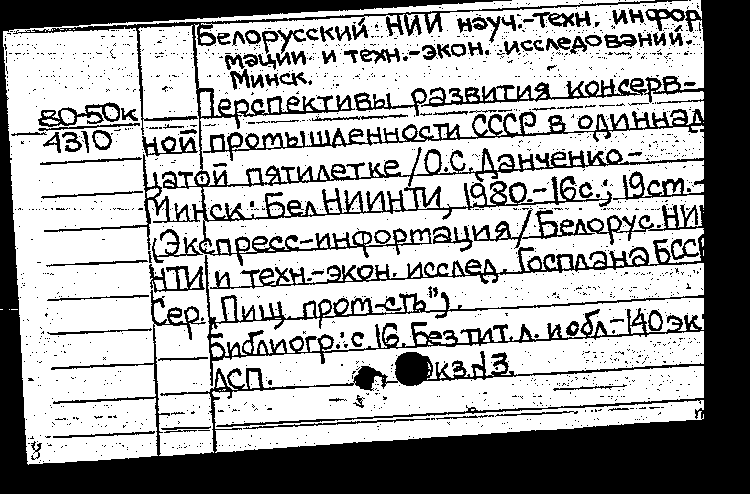 Белорусский НИИ науч.-техн. инфор
мации и техн.-экон. исследований.
Минск.
80-50к
4310
Перспективы развития консерв-
ной промышленности СССР в одиннад
цатой пятилетке / О.С. Данченко -
Минск: БелНИИНТИ, 1980.-16с.; 19ст.-
(Экспресс-инфортация / Белорус. НИИ
НТИ и техн.-экон. исслед. Госплана БССР
Сер. „Пищ. пром-сть").
Библиогр.: с. 16. Без тит. л. и обл.-140 эк
ДСП. кз. №3.
8